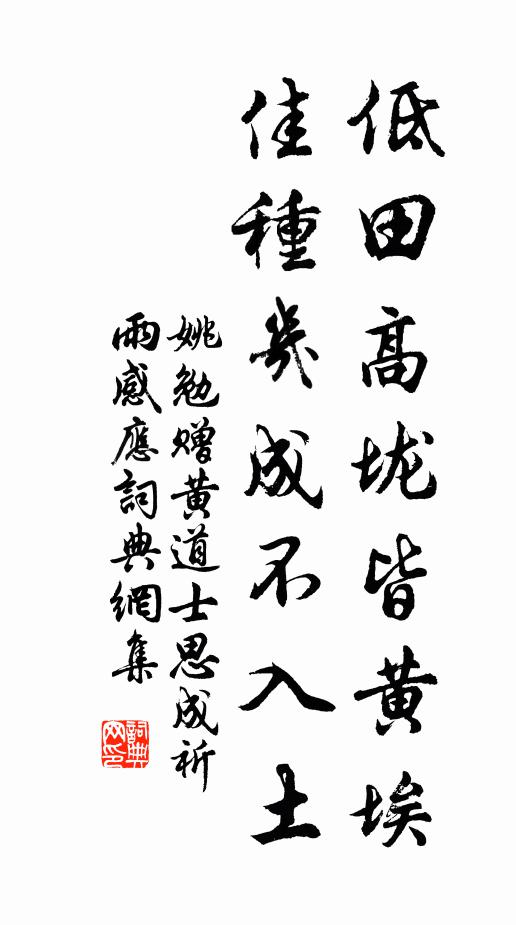 低田高垅皆黄埃
佳種幾成不入土
姚勉赠黄道士思成祈
雨感應詞典網集
詞典網印